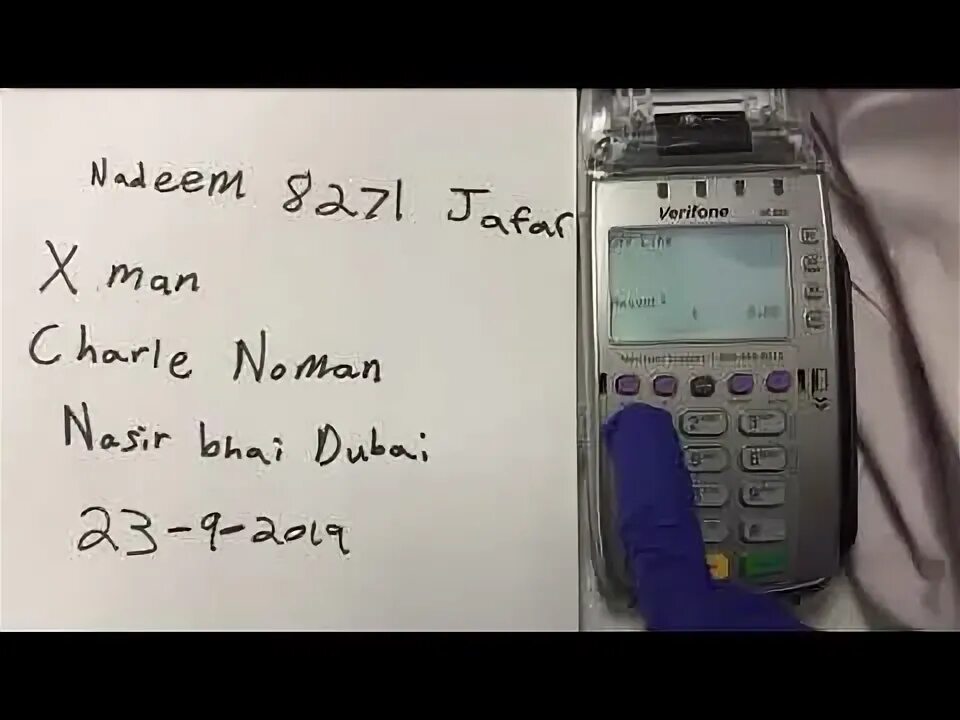 Nadeem 8271 Jafar
X man
Charle Noman
Nasir bhai Dubai
23-9-2019
Verifone
0.00